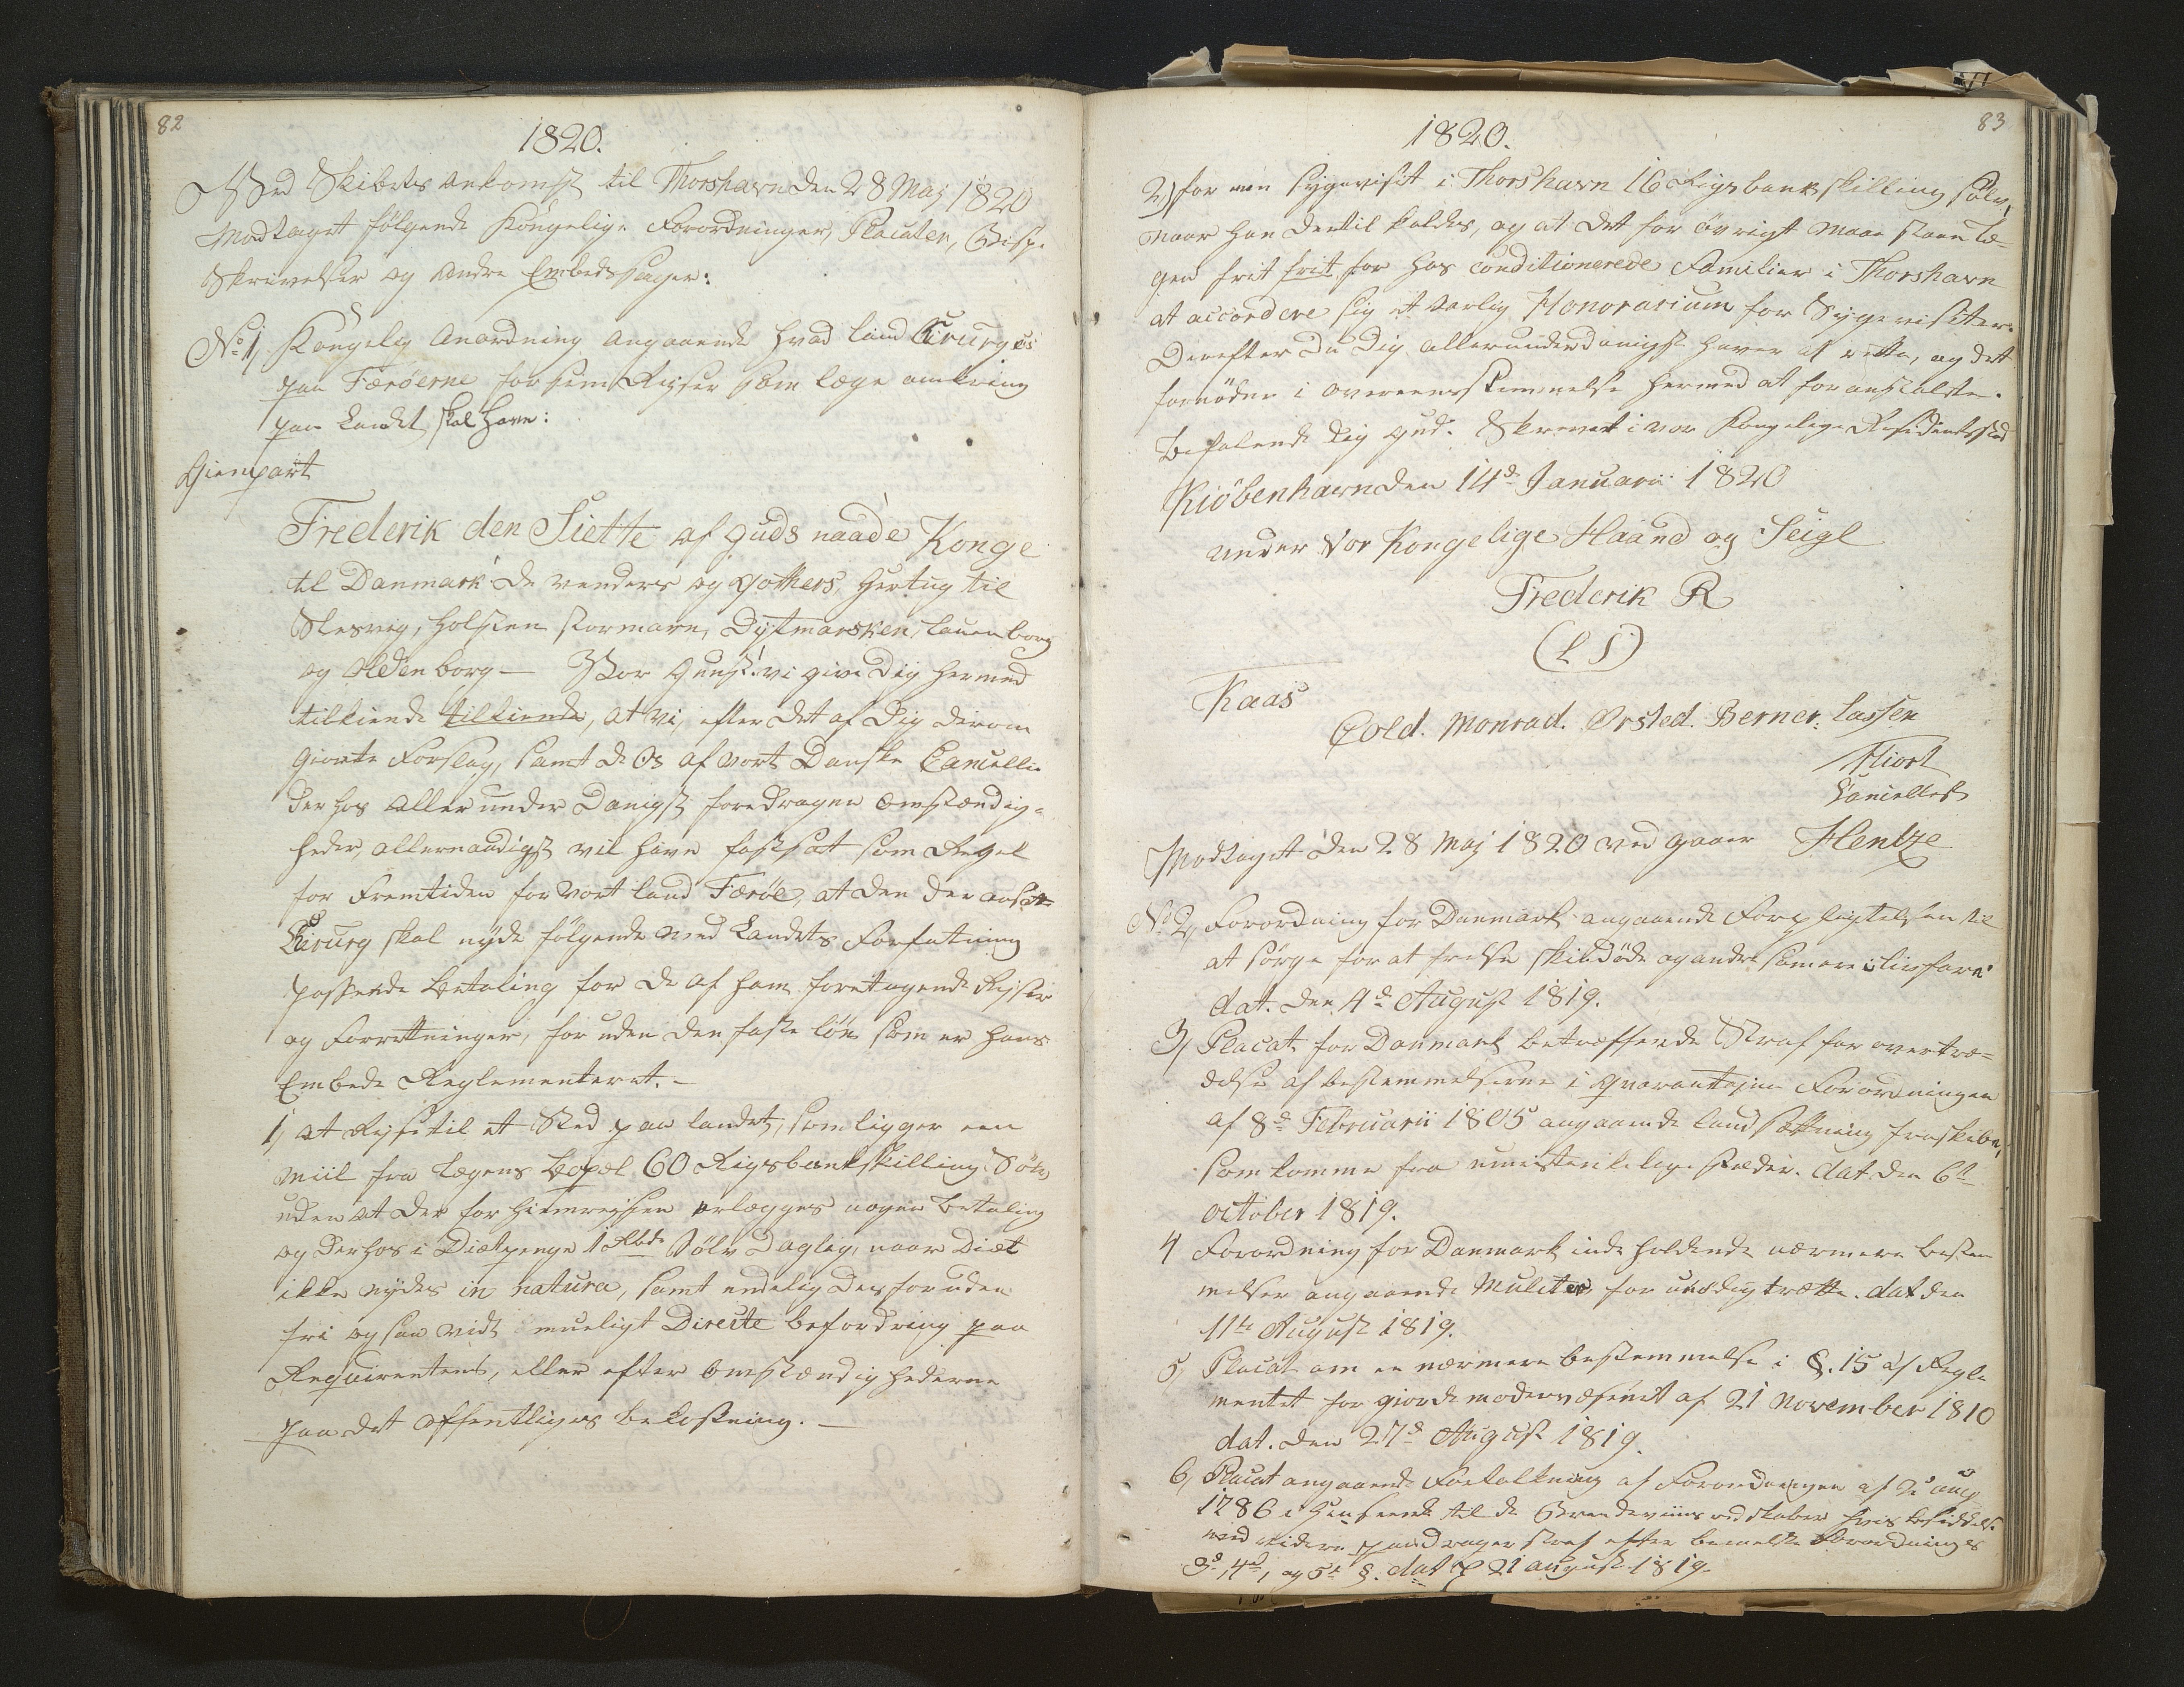 82
1820.
Med Skibets Ankomst til Thorshavn den 28 Maj 1820
Modtaget følgende Kongelige Forordninger, Placater, Bispe
Skrivelser og andre Embedssager:
No 1, Kongelig Anordning angaaende hvad Land Cirurgus
paa Færöerne for sine Rejser som Læge omkring
paa Landet skal have:
Gienpart
Frederik den Siette af Guds naade Konge
til Danmark de Venders og Gothers, Hertug til
Slesvig, Holsten Stormarn, Dytmarsken, Lauenborg
og Oldenborg — Vor Gunst! vi give Dig hermed
tilkiende tilkiende, at Vi, efter det af Dig derom
giorte Forslag, samt de Os af vort Danske Cancellie
derhos allerunderdanigst foredragne Omstændig-
heder, allernaadigst vil have fastsat som Regel
for Fremtiden for vort Land Færöe, at den der ansatte
Cirurg skal nyde følgende med Landets Forfatning
passende Betaling for de af ham foretagende Rejser
og Forretninger, foruden den faste Løn som er hans
Embede Reglementeret. —
1, at Rejse til et Sted paa Landet, som ligger een
Miil fra Lægens Bopæl 60 Rigsbankskilling Sölv
uden at der for Hiemrejsen erlægges nogen Betaling
og derhos i Diætpenge 1 Rbd Sölv Daglig, naar Diæt
ikke nydes in natura, samt endelig desforuden
fri og saa vidt mueligt Directe befordring paa
Requirentens, eller efter Omstændighederne
paa det offentliges bekostning. —
83
1820.
2) for een Sygevisit i Thorshavn 16 Rigsbankskilling Sölv,
naar han dertil kaldes, og at det for övrigt maae staae Læ-
gen frit frit for hos conditionerede Familier i Thorshavn
at accordere sig et Aarlig Honorarium for Sygevisiter.
Derefter Du Dig allerunderdanigst haver at rette, og dett
fornödne i overeensstemmelse hermed at foranstalte.
Befalende Dig Gud. Skrevet i vor Kongelige Residentsstad
Kiöbenhavn den 14de Januarii 1820
under Vor Kongelige Haand og Seigl
Frederik R
(L S)
Kaas
Cold. Monrad. Ørsted. Berner. Lassen
Hiort
Modtaget den 28 Maj 1820 ved Gaaer Hentze
No 2, Forordning for Danmark angaaende Forpligtelsen til
at sörge for at frelse skindöde og andre som ere i Livsfare
dat. den 4de August 1819.
3, Placat for Danmark betreffende Straf for overtræ-
delse af bestemmelserne i Qvarantaine Forordningen
af 8de Februarii 1805 angaaende Landsætning fra Skibe,
som komme fra umistænkelige Stæder. dat. den 6te
october 1819.
4 Forordning for Danmark inde holdende nærmere bestem
melser angaaende Mulcter for unödig trætte. dat den
11te August 1819.
5, Placat om en nærmere bestemmelse i §. 15 af Regle
mentet for giordemodervæsenet af 21 November 1810
dat. den 27de August 1819.
6, Placat angaaende Fortolkning af Forordningen af 2 Aug
1786 i Henseende til de Brændeviinsredskaber hvis besiddelse
med videre paadrager Straf efter bemelte Forordnings
3de, 4de, og 5te §. dat. d 21 August 1819.